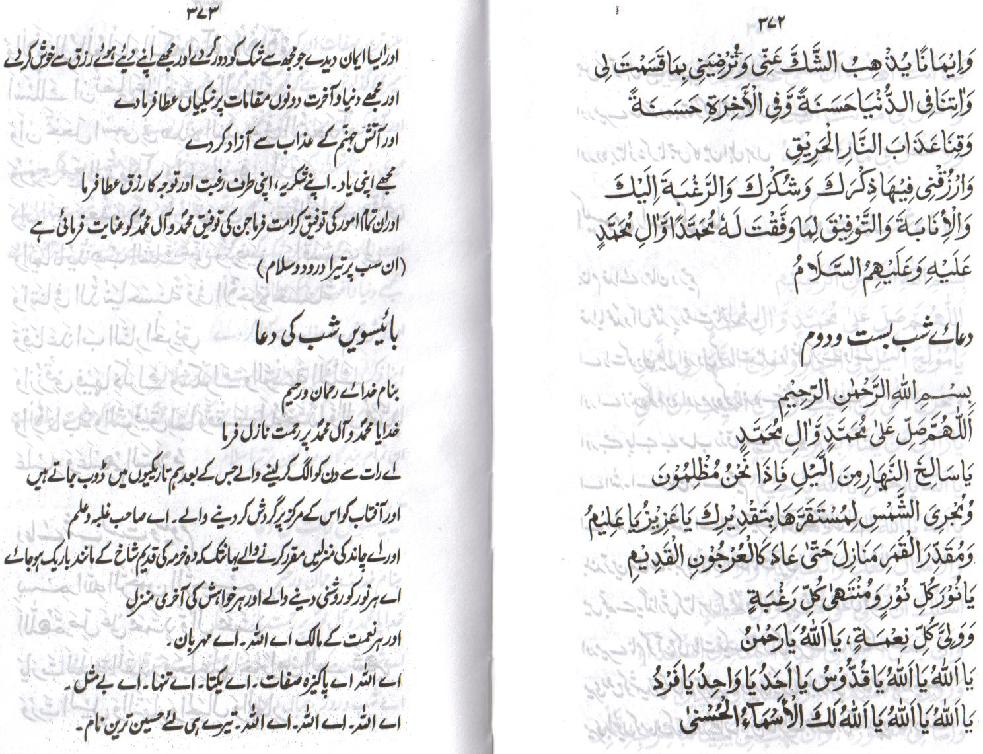 ۳۷۲
وَاِیْمَانًا یُذْهِبُ الشَّکَّ عَنِّیْ وَتُرْضِیَنِیْ بِمَا قَسَمْتَ لِیْ
وَاٰتِنَا فِی الدُّنْیَا حَسَنَةً وَّفِی الْاٰخِرَةِ حَسَنَةً
وَقِنَا عَذَابَ النَّارِ الْحَرِیْقِ
وَارْزُقْنِیْ فِیْهَا ذِکْرَکَ وَشُکْرَکَ وَالرَّغْبَةَ اِلَیْکَ
وَالْاِنَابَةَ وَالتَّوْفِیْقَ لِمَا وَفَّقْتَ لَهٗ مُحَمَّدًا وَّاٰلَ مُحَمَّدٍ
عَلَیْهِ وَعَلَیْهِمُ السَّلَامُ
دعائے شب بست و دوم
بِسْمِ اللّٰهِ الرَّحْمٰنِ الرَّحِیْمِ
اَللّٰهُمَّ صَلِّ عَلٰی مُحَمَّدٍ وَّاٰلِ مُحَمَّدٍ
یَا سَالِخَ النَّهَارِ مِنَ الَّیْلِ فَاِذَا نَحْنُ مُظْلِمُوْنَ
وَمُجْرِیَ الشَّمْسِ لِمُسْتَقَرِّهَا بِتَقْدِیْرِکَ یَا عَزِیْزُ یَا عَلِیْمُ
وَمُقَدِّرَ الْقَمَرِ مَنَازِلَ حَتّٰی عَادَ کَالْعُرْجُوْنِ الْقَدِیْمِ
یَا نُوْرَ کُلِّ نُوْرٍ وَمُنْتَهٰی کُلِّ رَغْبَةٍ
وَوَلِیَّ کُلِّ نِعْمَةٍ، یَا اَللّٰهُ یَا رَحْمٰنُ
یَا اَللّٰهُ یَا اَللّٰهُ یَا قُدُّوْسُ یَا اَحَدُ یَا وَاحِدُ یَا فَرْدُ
یَا اَللّٰهُ یَا اَللّٰهُ یَا اَللّٰهُ لَکَ الْاَسْمَآءُ الْحُسْنٰی
۳۷۳
اور ایسا ایمان دیدے جو مجھ سے شک کو دور کر دے اور مجھے اپنے دیئے ہوئے رزق سے خوش کر لے
اور مجھے دنیا و آخرت دونوں مقامات پر نیکیاں عطا فرما دے
اور آتش جہنم کے عذاب سے آزاد کر دے
مجھے اپنی یاد۔ اپنے شکریہ، اپنی طرف رغبت اور توجہ کا رزق عطا فرما
اور ان تمام امور کی توفیق کرامت فرما جن کی توفیق محمدؐ و آل محمدؐ کو عنایت فرمائی ہے
(ان سب پر تیرا درود و سلام)
بائیسویں شب کی دعا
بنام خدائے رحمان و رحیم
خدایا محمدؐ و آل محمدؐ پر رحمت نازل فرما
اے رات سے دن کو الگ کر لینے والے جس کے بعد ہم تاریکیوں میں ڈوب جاتے ہیں
اور آفتاب کو اس کے مرکز پر گردش کر دینے والے۔ اے صاحب غلبہ و علم
اور اے چاند کی منزلیں مقرر کرنے والے یہانتک کہ وہ خرمہ کی قدیم شاخ کے مانند باریک ہو جائے
اے ہر نور کو روشنی دینے والے اور ہر خواہش کی آخری منزل
اور ہر نعمت کے مالک اے اللہ۔ اے مہربان۔
اے اللہ اے پاکیزہ صفات۔ اے یکتا۔ اے تنہا۔ اے بے مثل۔
اے اللہ۔ اے اللہ۔ اے اللہ۔ تیرے ہی لئے حسین ترین نام۔